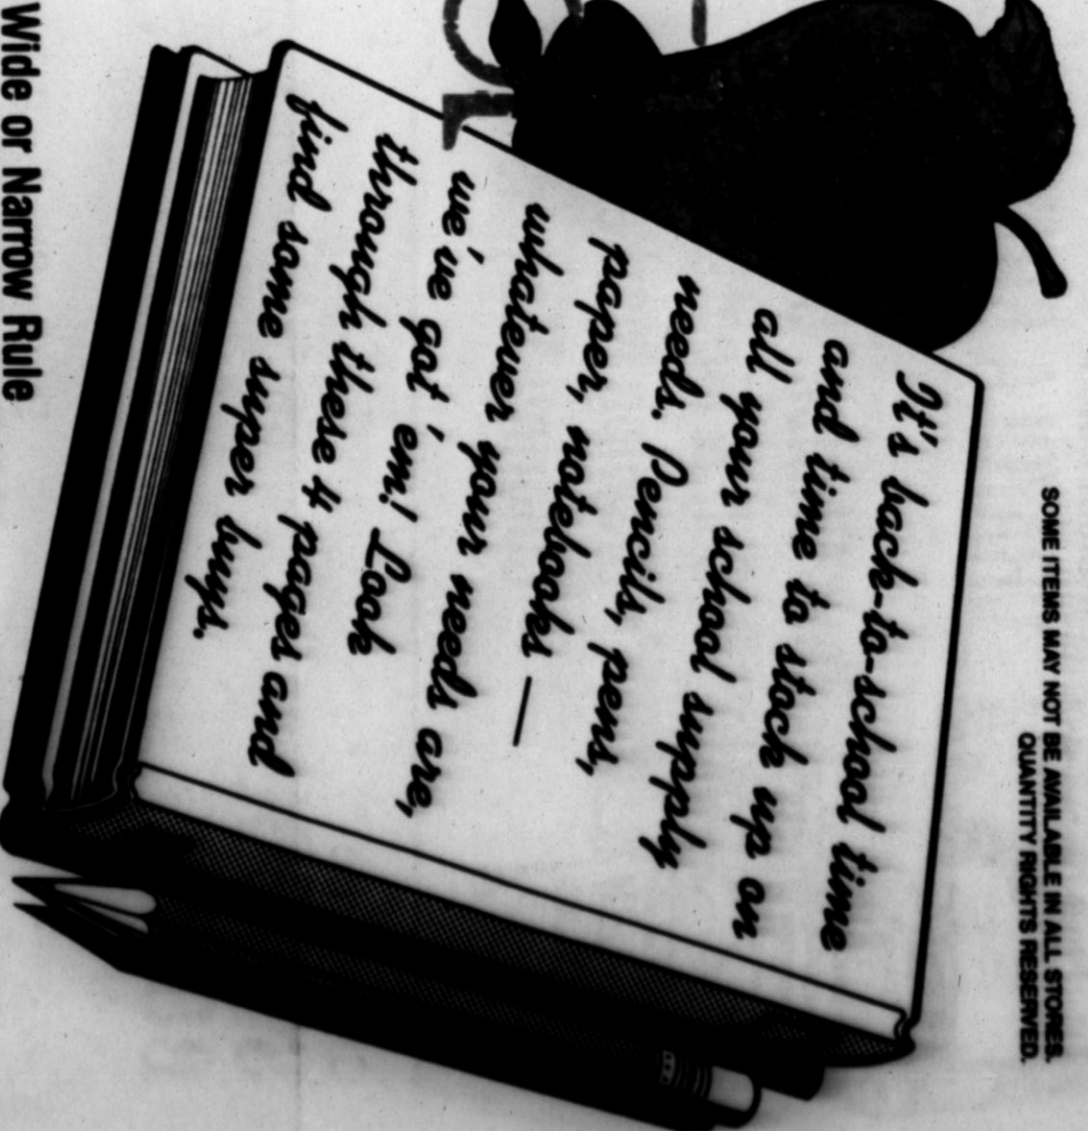 SOME ITEMS MAY NOT BE AVAILABLE IN ALL STORES.
QUANTITY RIGHTS RESERVED.
It's back-to-school time
and time to stock up on
all your school supply
needs. Pencils, pens,
paper, notebooks —
whatever your needs are,
we've got 'em! Look
through these 4 pages and
find some super buys.
Wide or Narrow Rule